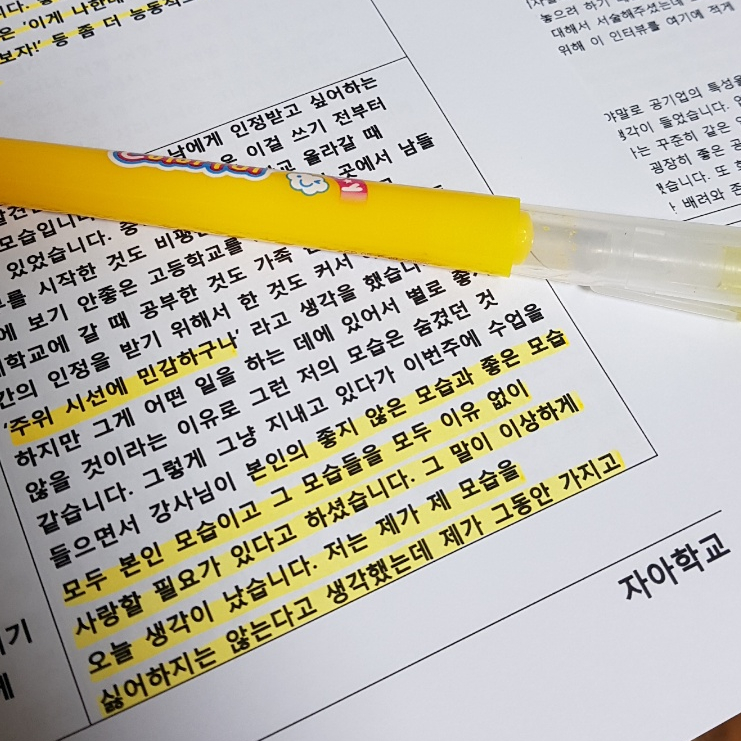 은 '이게 나한테
보자!' 등 좀 더 능동적으
남에게 인정받고 싶어하는
은 이걸 쓰기 전부터
올라갈 때
곳에서 남들
모습입니
있었습니다.
를 시작한 것도 비평
에 보기 안좋은 고등학교를
대학교에 갈 때 공부한 것도 가족
간의 인정을 받기 위해서 한 것도 커서
'주위 시선에 민감하구나' 라고 생각을 했습니
하지만 그게 어떤 일을 하는 데에 있어서 별로 좋
않을 것이라는 이유로 그런 저의 모습은 숨겼던 것
같습니다. 그렇게 그냥 지내고 있다가 이번주에 수업을
들으면서 강사님이 본인의 좋지 않은 모습과 좋은 모습
모두 본인 모습이고 그 모습들을 모두 이유 없이
사랑할 필요가 있다고 하셨습니다. 그 말이 이상하게
오늘 생각이 났습니다. 저는 제가 제 모습을
싫어하지는 않는다고 생각했는데 제가 그동안 가지고
자아학교
놓으려 하기
대해서 서술해주셨는데
위해 이 인터뷰를 여기에 적게
야말로 공기업의 특성을
생각이 들었습니다.
는 꾸준히 같은
굉장히 좋은 공
했습니다. 또
배려와 존